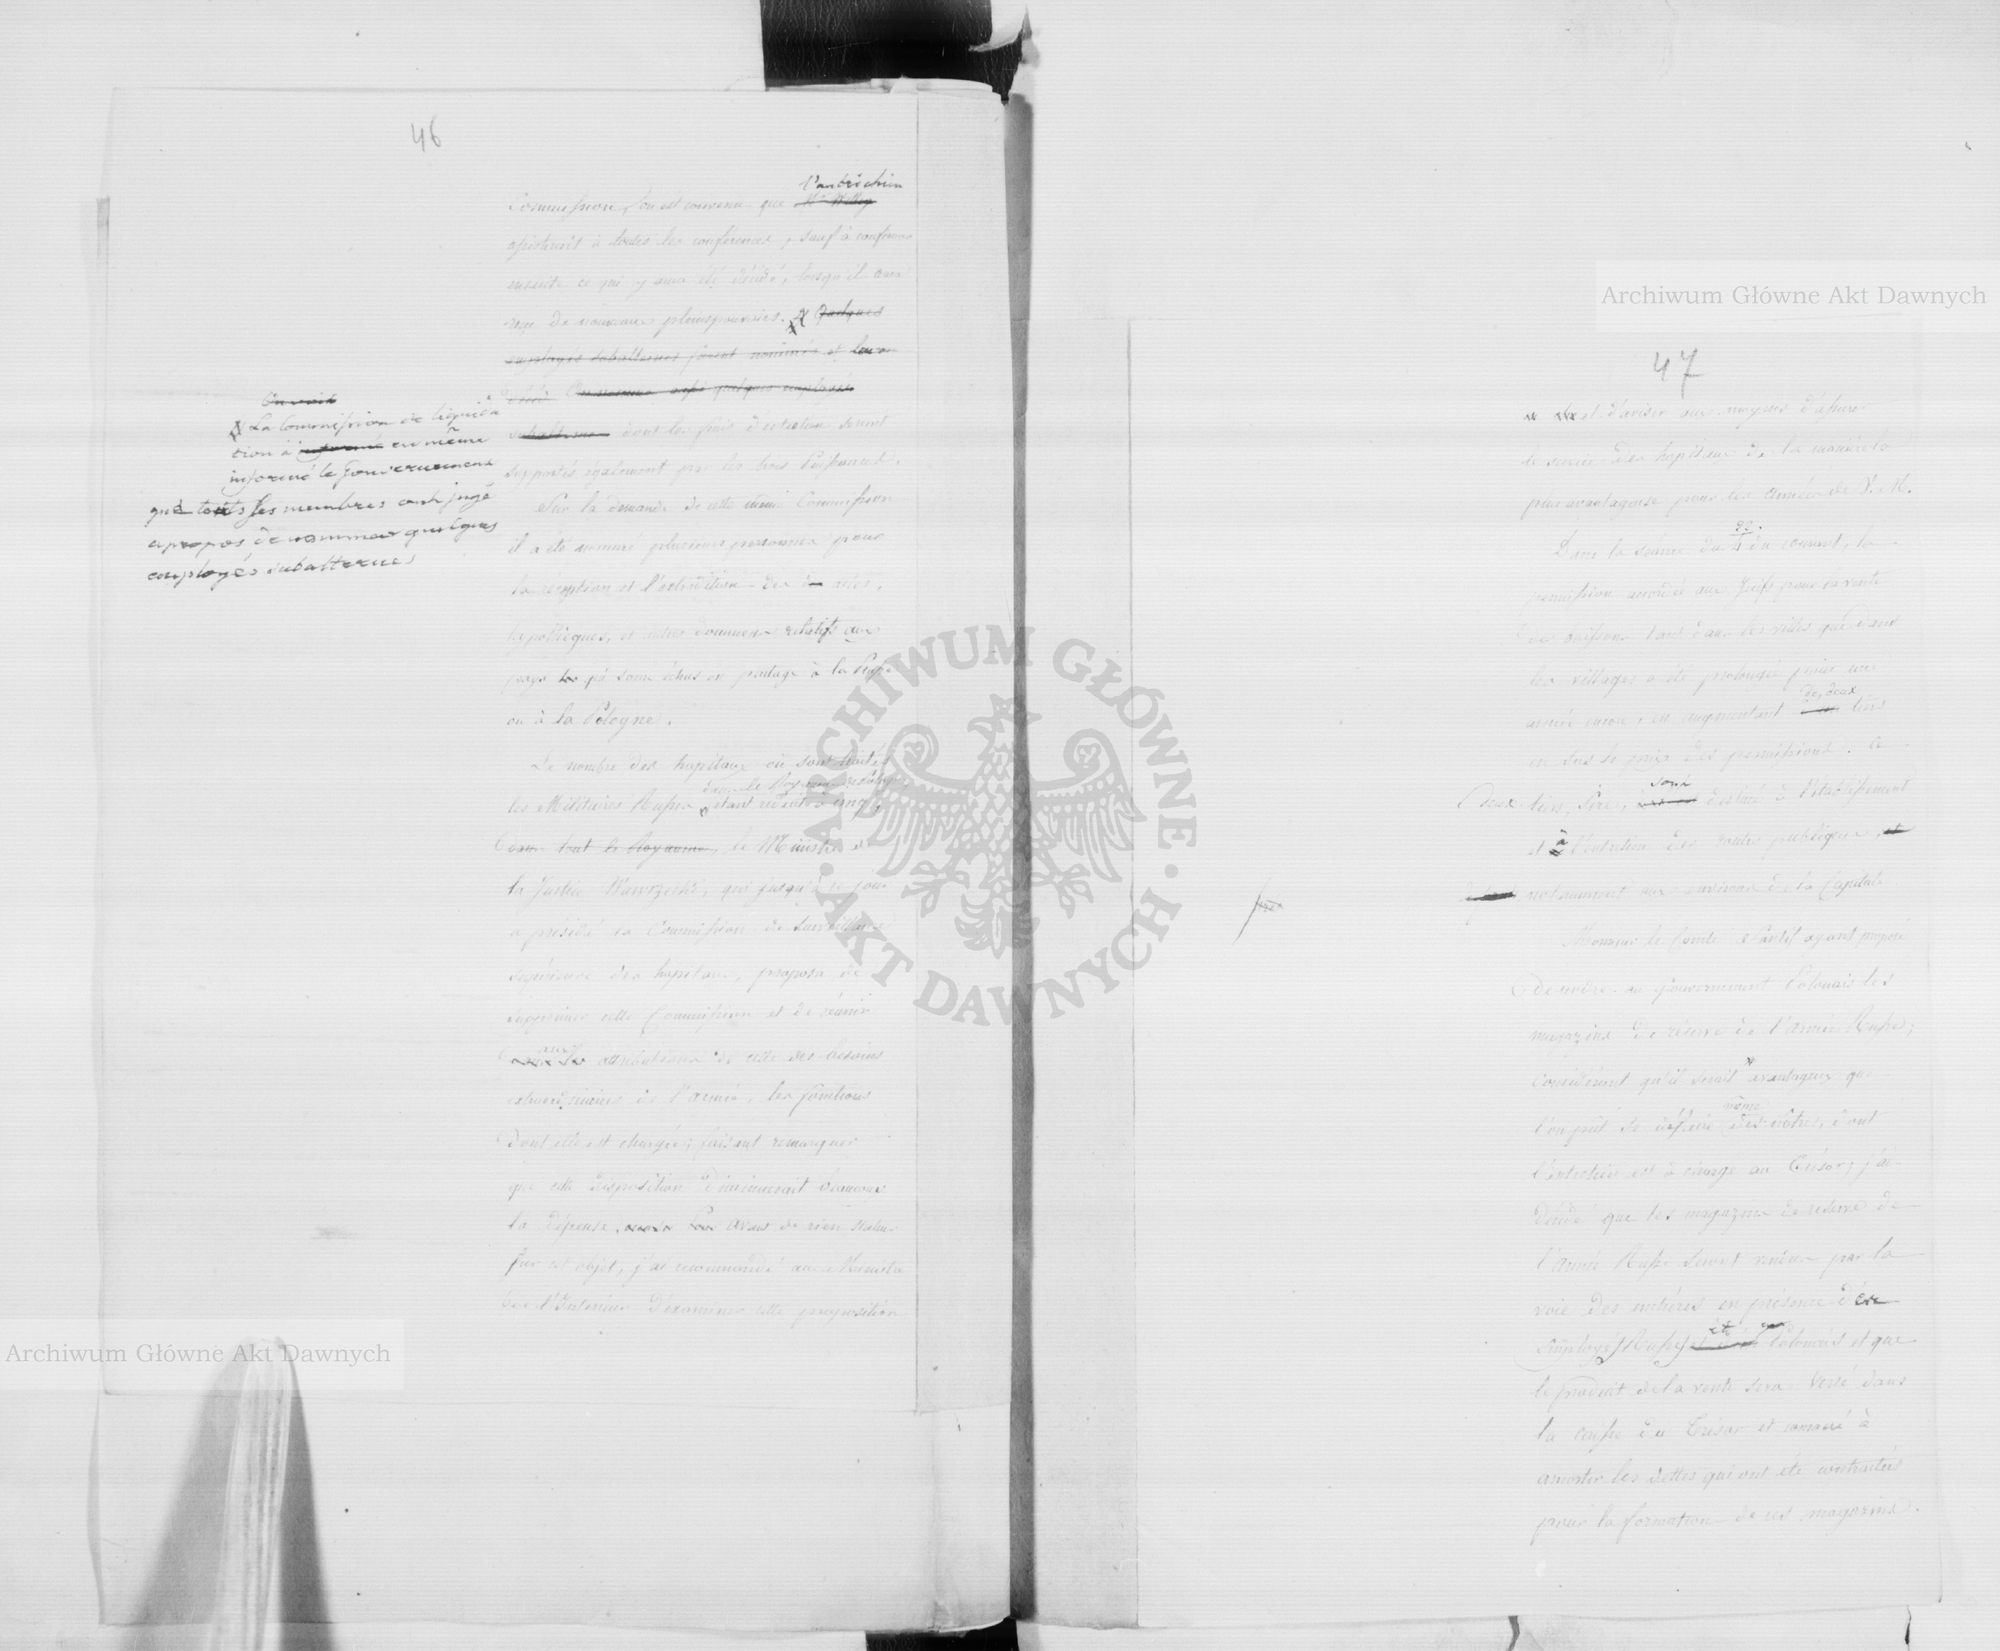 46
l'autrichien
Commission, l'on est convenu que
assisteroit à toutes les conférences, sauf à confirmer
ensuite ce qui y aura été décidé, lorsqu'il aura
reçu de nouveaux pleinspouvoirs. Quelques
employés subalternes furent nommés et
On nomma aussi quelques employés
subalternes dont les frais d'entretien seront
supportés également par les trois Puissances.
On voit
La Commission de liquida
tion a informé en même
informé le Gouvernement
que touts ses membres ont jugé
apropos de nommer quelques
employés subalternes
Sur la demande de cette même Commission
il a été nommé plusieurs personnes pour
la réception et l'extradition des actes,
hypothèques, et autres documens relatifs aux
pays qui sont échus en partage à la Prusse
ou à la Pologne.
Le nombre des hopitaux où sont traités
dans le Royaume de Pologne
les Militaires Russes étant réduit à cinq,
dans tout le Royaume, le Ministre de
la Justice Wawrzecki, qui jusqu'à ce jour
a présidé la Commission de surveillance
supérieure des hopitaux, proposa de
supprimer cette Commission et de réunir
aux
attributions de celle des besoins
extraordinaires de l'armée, les fonctions
dont elle est chargée; faisant remarquer
que cette disposition diminuerait beaucoup
la dépense. Avant de rien statuer
sur cet objet, j'ai recommandé au Ministre
de l'Intérieur d'examiner cette proposition
47
et d'aviser aux moyens d'assurer
le service des hopitaux de la manière la
plus avantageuse pour les armées de V. M.
Dans la séance du du courant, la
permission accordée aux Juifs pour la vente
des boissons tant dans les villes que dans
les villages a été prolongée pour une
de deux
année encore, en augmentant tiers
en sus le prix des permissions. Ce
sera
deux tiers, Sire, destiné à l'établissement
et à l'entretien des routes publiques, et
notamment aux environs de la Capitale
Monsieur le Comte ayant proposé
de vendre au Gouvernement Polonais les
magazins de réserve de l'armée Russe;
considérant qu'il serait avantageux que
même
l'on pût se défaire des nôtres, dont
l'entretien est à charge au Trésor; j'ai
décidé que les magazins de réserve de
l'armée Russe seront vendus par la
voie des enchères en présence d'
Employés Russes et Polonais et que
le produit de la vente sera versé dans
la caisse du Trésor et consacré à
amortir les dettes qui ont été contractées
pour la formation de ces magazins.
Archiwum Główne Akt Dawnych
Archiwum Główne Akt Dawnych
ARCHIWUM GŁÓWNE
AKT DAWNYCH